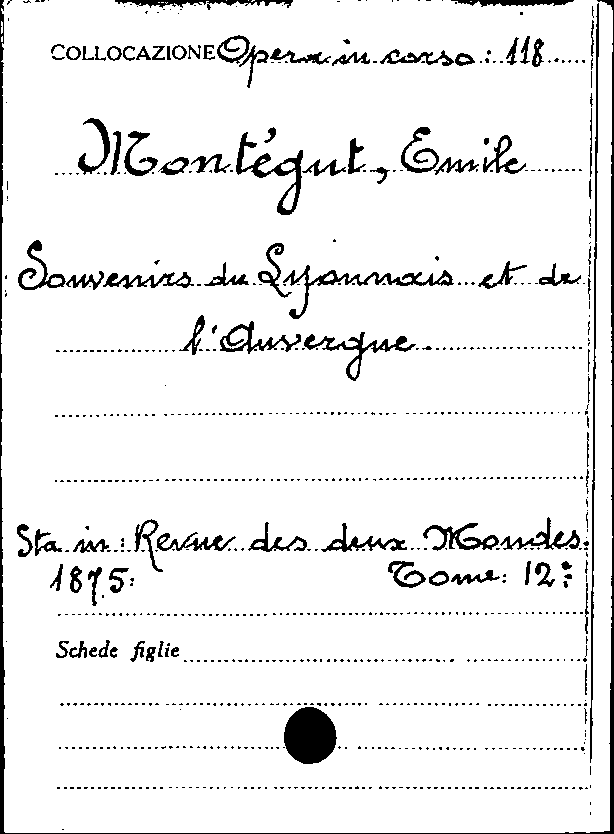 COLLOCAZIONE Opera in corso: 118
Montégut, Emile
Souvenirs du Lyonnais et de
l'Auvergne.
Sta in: Revue des deux Mondes.
1875: Tome: 12º:
Schede figlie